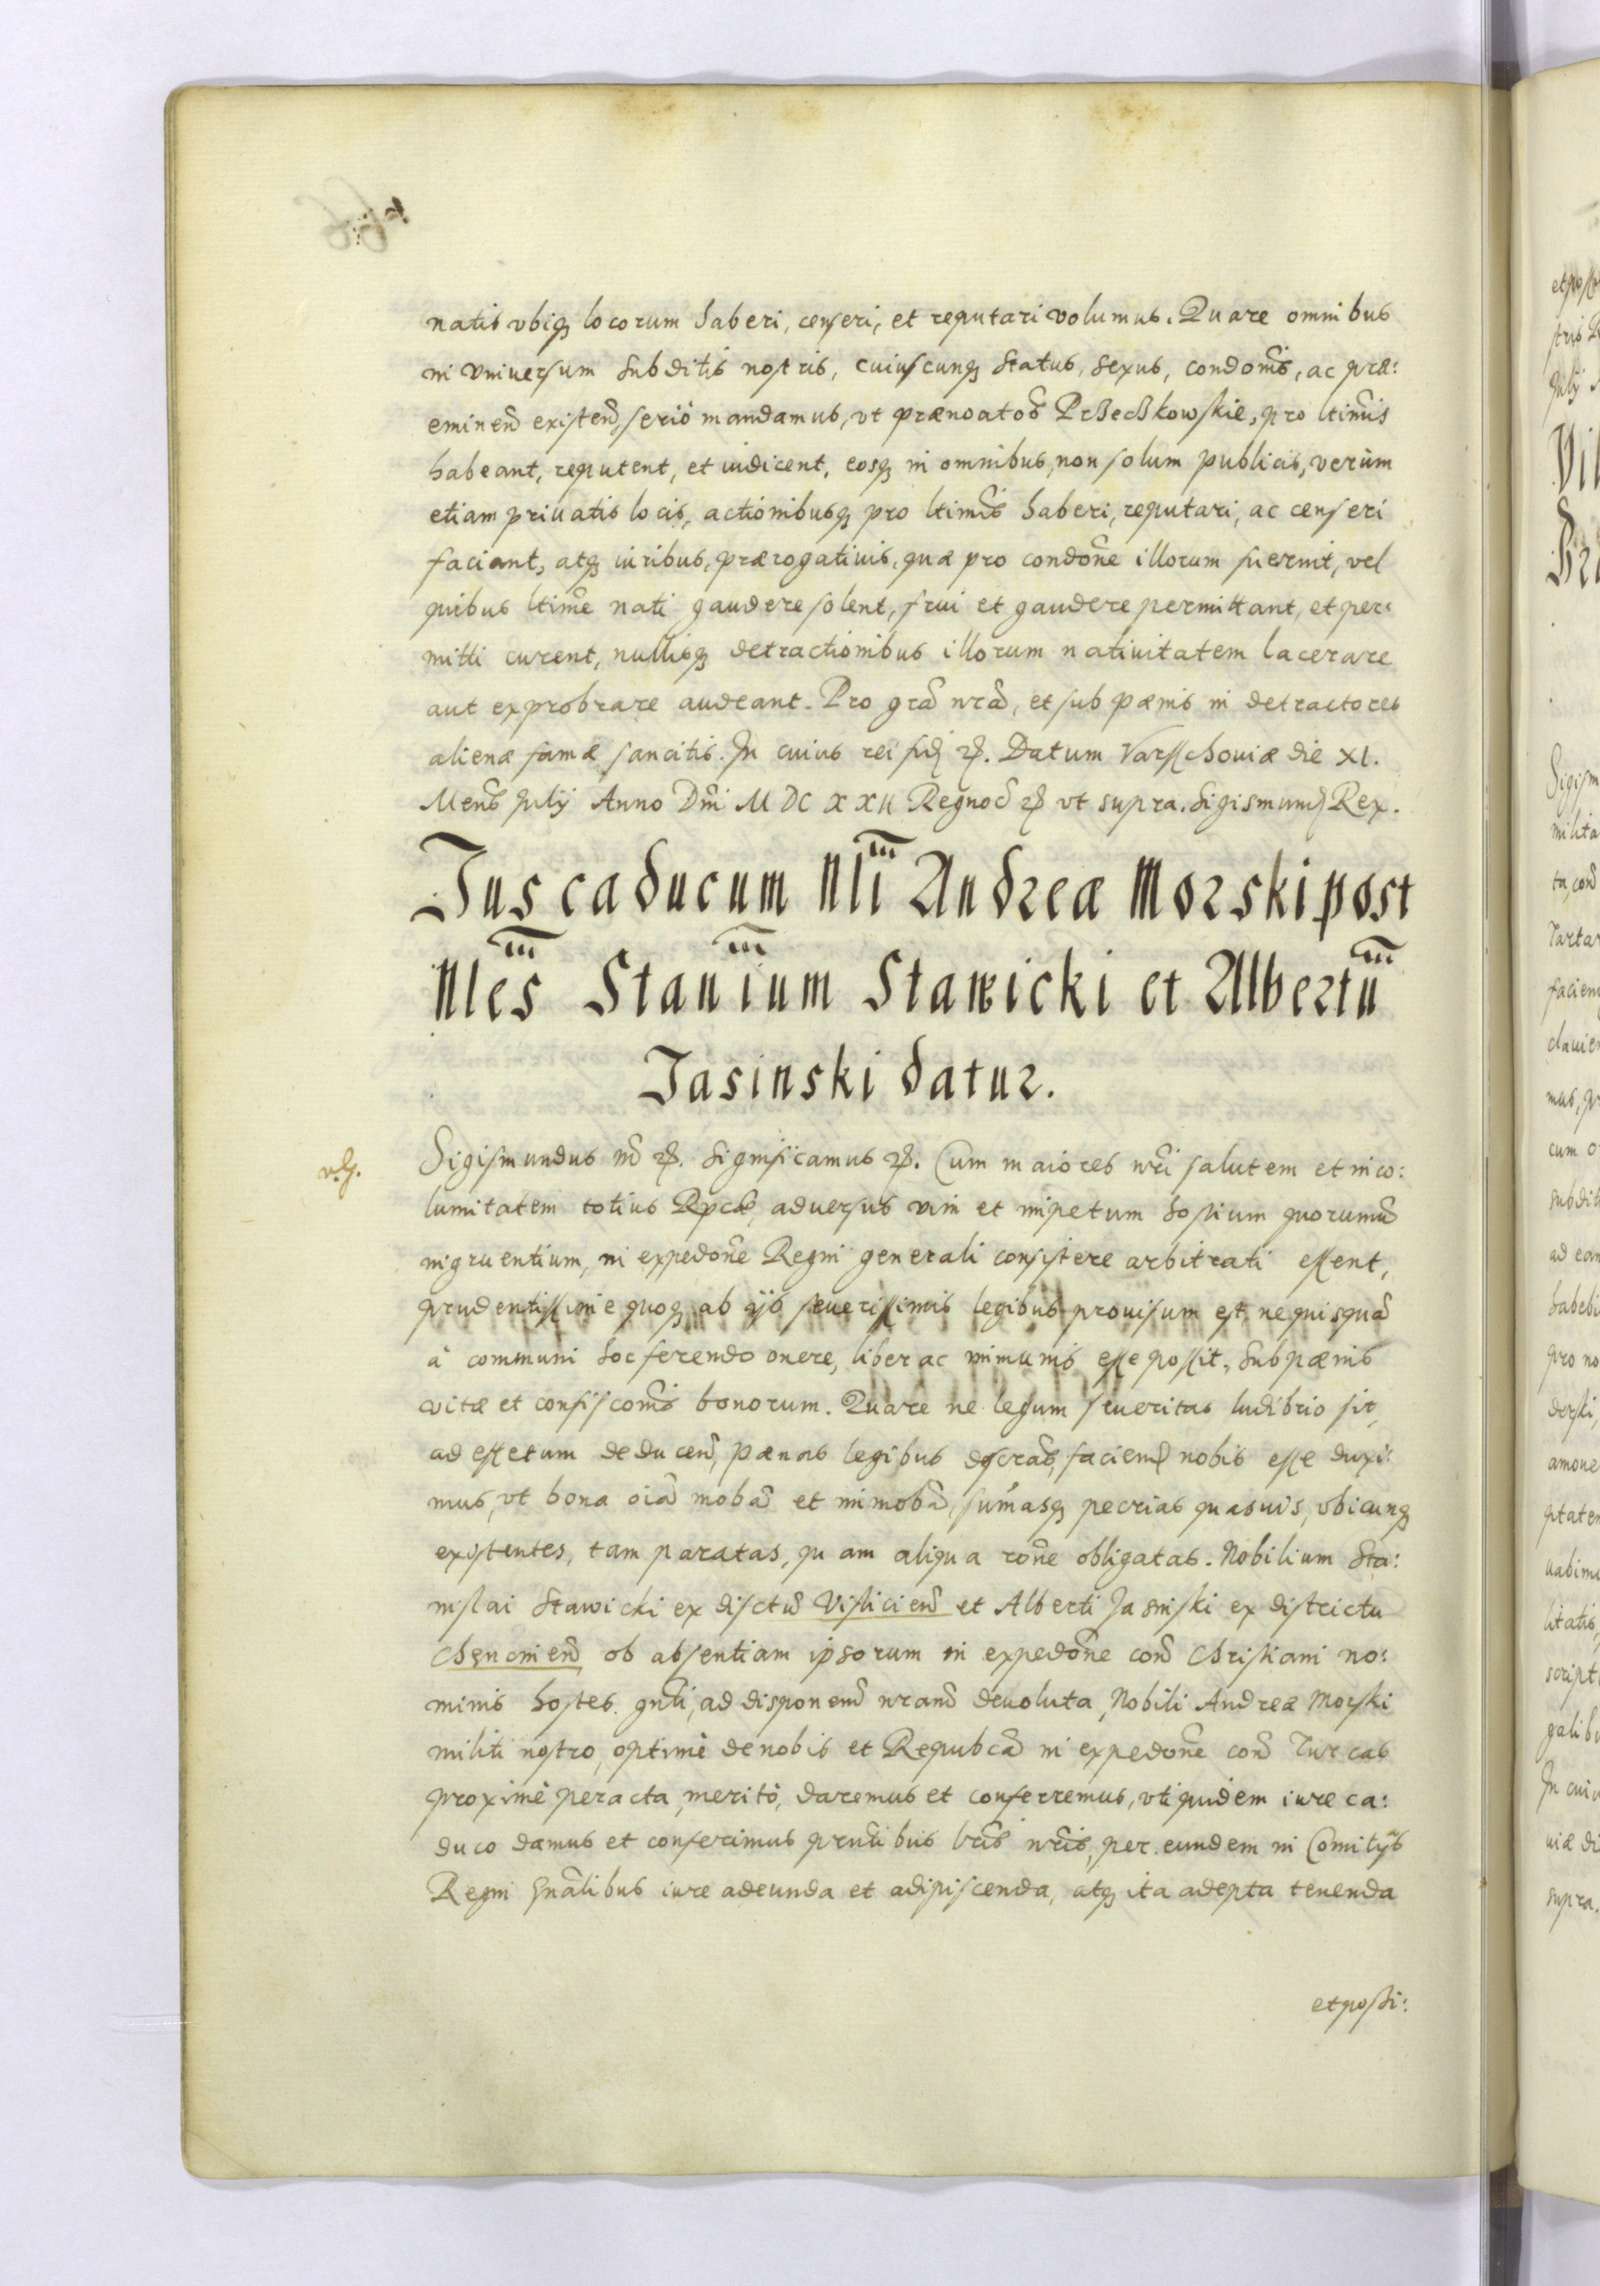 natis vbiq; locorum haberi, censeri, et reputari volumus. Quare omnibus
in vniuersum subditis nostris, cuiuscunq; status, sexus, condonis, ac præ:
eminen existen, serio mandamus, vt prænoatos Przeczkowskie, pro ltimis
habeant, reputent, et iudicent, eosq; in omnibus, non solum publicis, verùm
etiam priuatis locis, actionibusq; pro ltimis haberi, reputari, ac censeri
faciant, atq; iuribus, prærogatiuis, quæ pro condone illorum fuerint, vel
quibus ltime nati gaudere solent, frui et gaudere permittant, et per:
mitti curent, nullisq; detractionibus illorum natiuitatem lacerare
aut exprobrare audeant. Pro gra nra, et sub pænis in detractores
alienæ famæ sancitis. In cuius rei fid etc. Datum Varsschouiæ die XI.
Mens July Anno Dni MDCXXII Regnor etc vt supra. Sigismund Rex.
Jus caducum Nli Andreæ Morski post
Nles Stanium Stawicki et Albertu
Jasinski datur.
Sigismundus IIItius etc. Significamus etc. Cum maiores nri salutem et inco:
lumitatem totius Rpcæ, aduersus vim et impetum hostium quorumuis
ingruentium, in expedone Regni generali consistere arbitrati essent,
prudentissime quoq; ab ijs seuerissimis legibus prouisum est, ne quisqua
à communi hoc ferendo onere, liber ac immunis esse possit, sub pænis
vitæ et confiscomis bonorum. Quare ne legum seueritas ludibrio sit,
ad effectum deducen, pænas legibus descras, faciend nobis esse duxi:
mus, vt bona oia moba et immoba, sumasq; pecrias quasuis, vbicunq;
existentes, tam paratas, quam aliqua rone obligatas. Nobilium Sta:
nislai Stawicki ex disctu Visliciens et Alberti Jasinski ex districtu
Chenciniens ob absentiam ipsorum in expedone con Christiani no:
minis hostes gnli, ad disponem nram deuoluta, Nobili Andreæ Morski
militi nostro, optimè de nobis et Repubca in expedone con Turcas
proximè peracta, meritò, daremus et conferremus, vti quidem iure ca:
duco damus et conferimus prntibus lris nris, per eundem in Comitijs
Regni gnalibus iure adeunda et adipiscenda, atq; ita adepta tenenda
et possi: